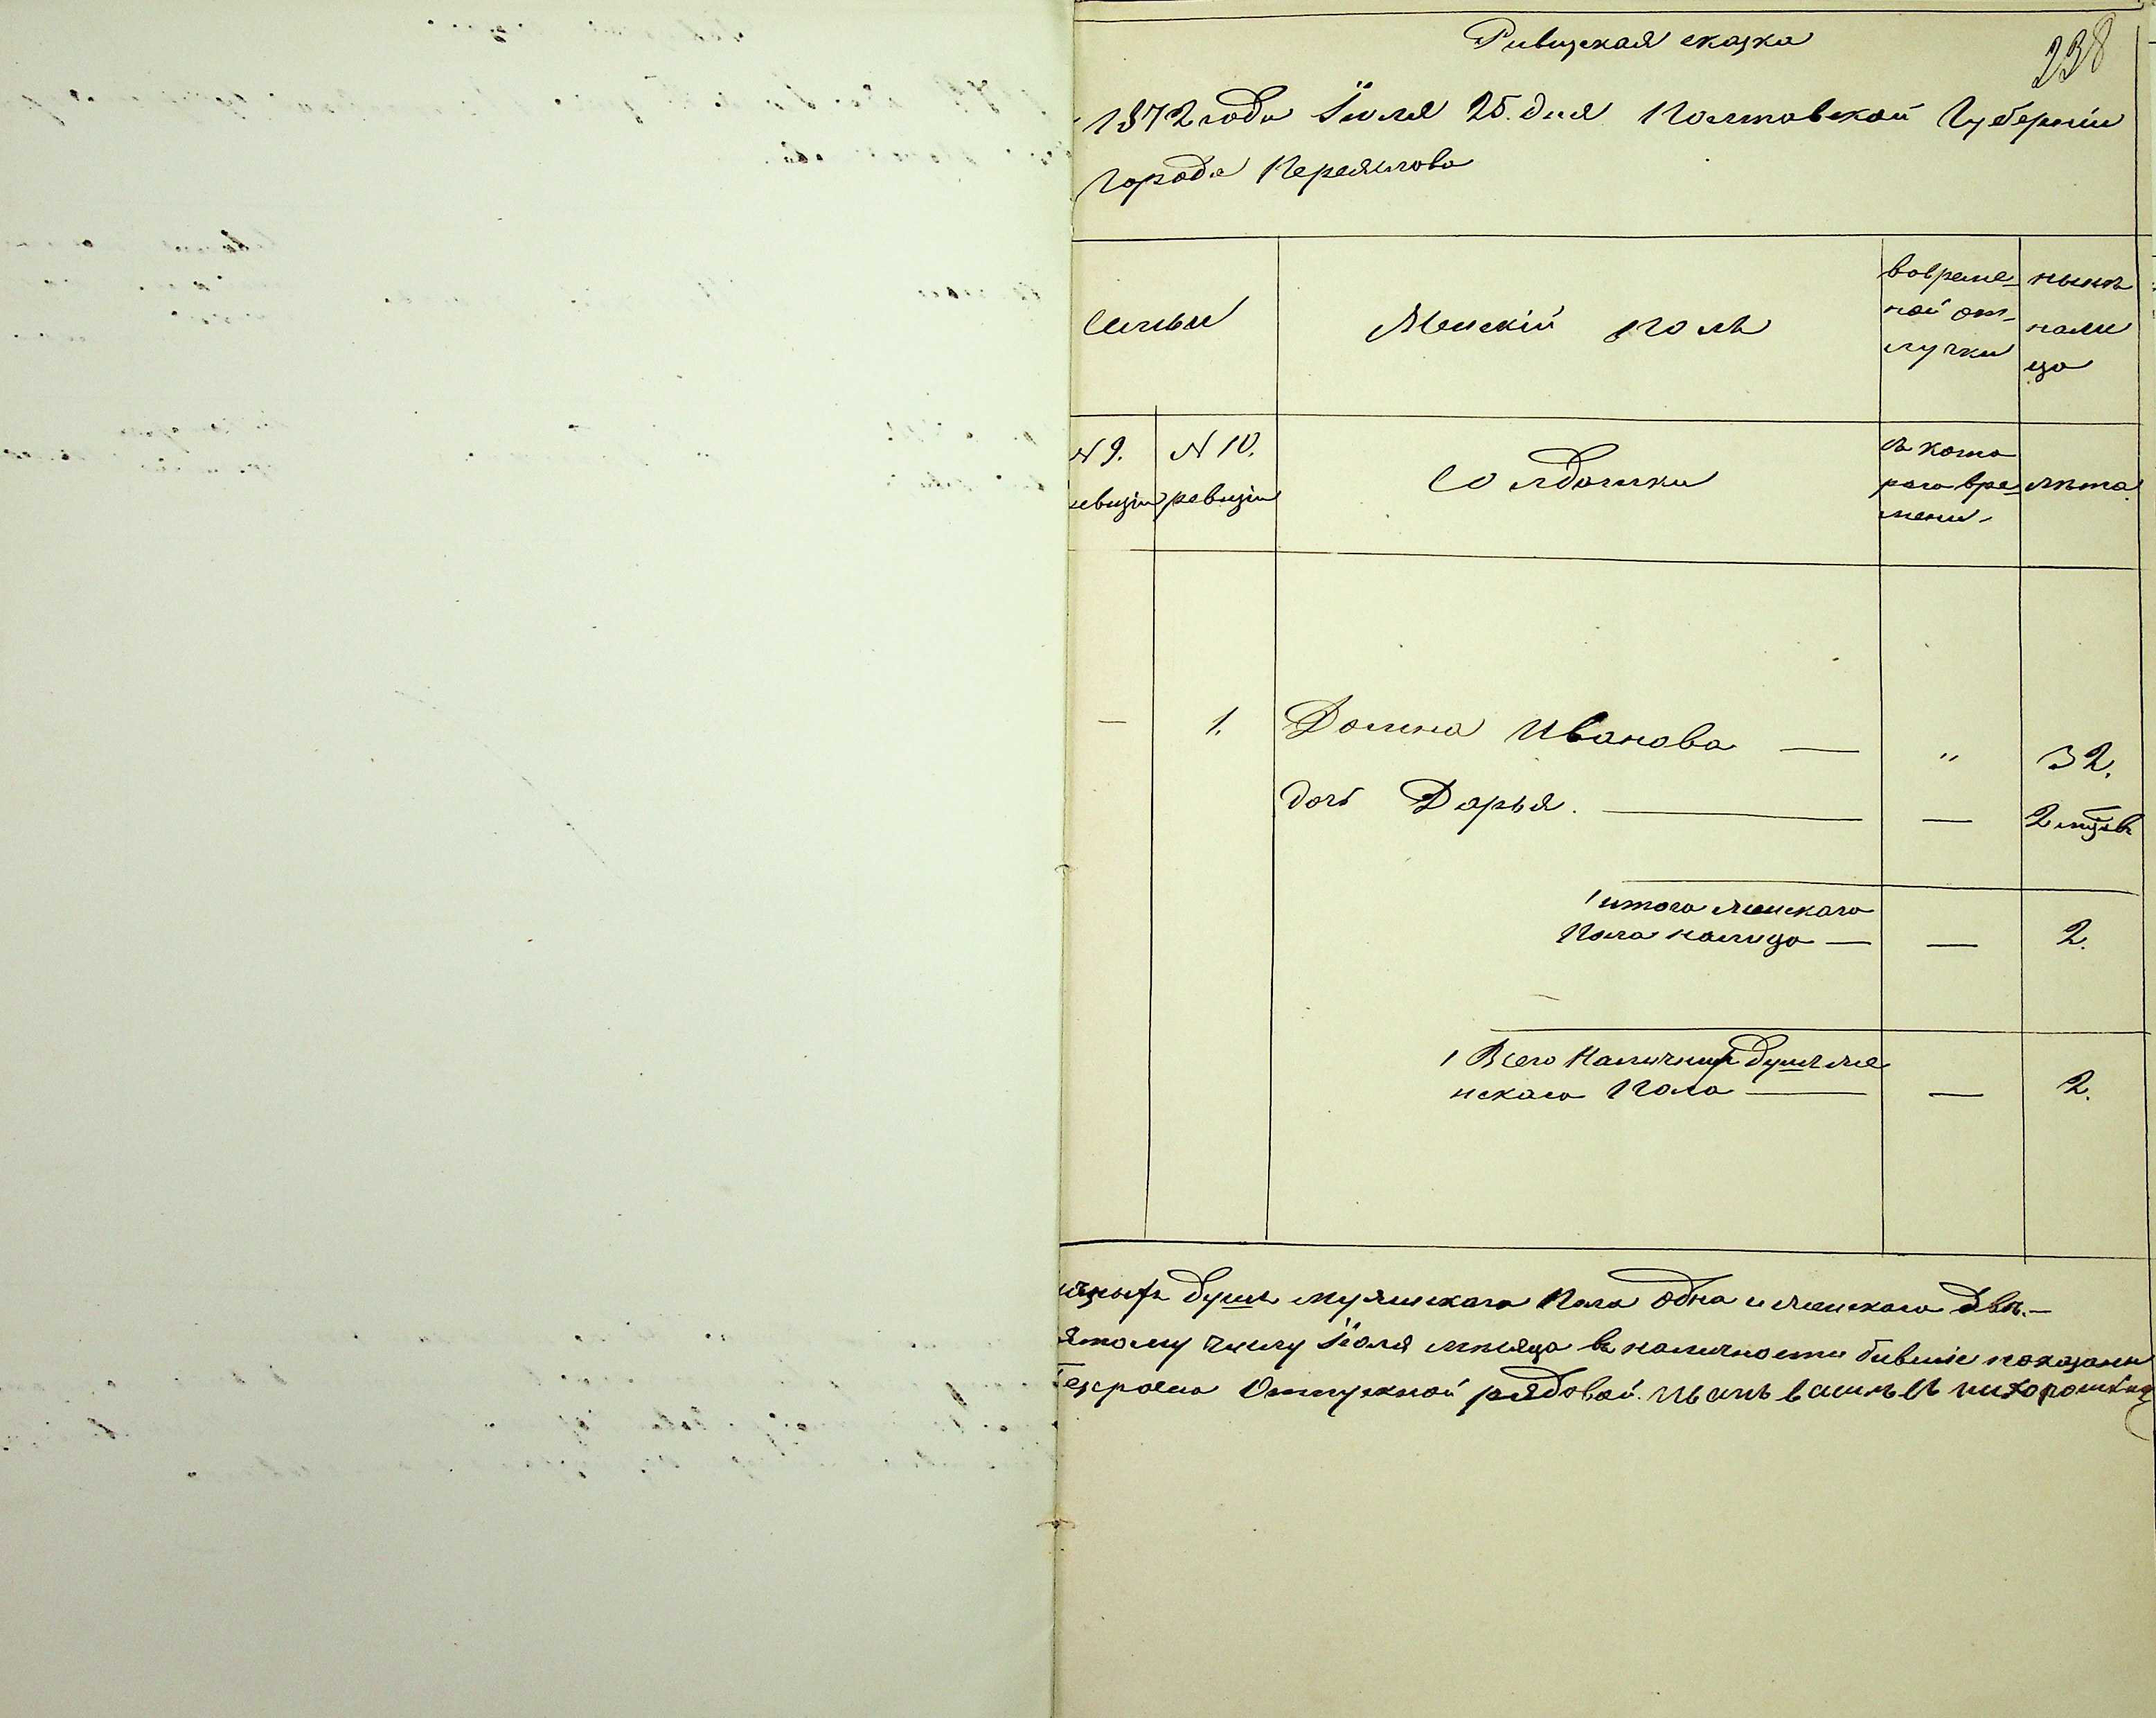 Ривизская сказка
238
1872 года Іюля 25. дня Полтавской Губерніи
города Переяслова
Семьи
Женскій полъ
вовреме-
ной от-
лучки
нынѣ
нали
цо
N 9.
ревизіи
N 10.
ревизіи
Солдатки
съ кото
раго вре-
мени
лѣта.
— 1. Домна Иванова — " 32.
дочь Дарья. — — 2 мцвъ
итого женскаго
пола налицо — — 2.
Всего Наличныхъ душъ же
нскаго пола — — 2.
душъ мужискаго пола одна и женскаго двѣ.—
числу Іюля мѣсяца въ наличности бившіе показаны
Отпускной рядовой Иванъ